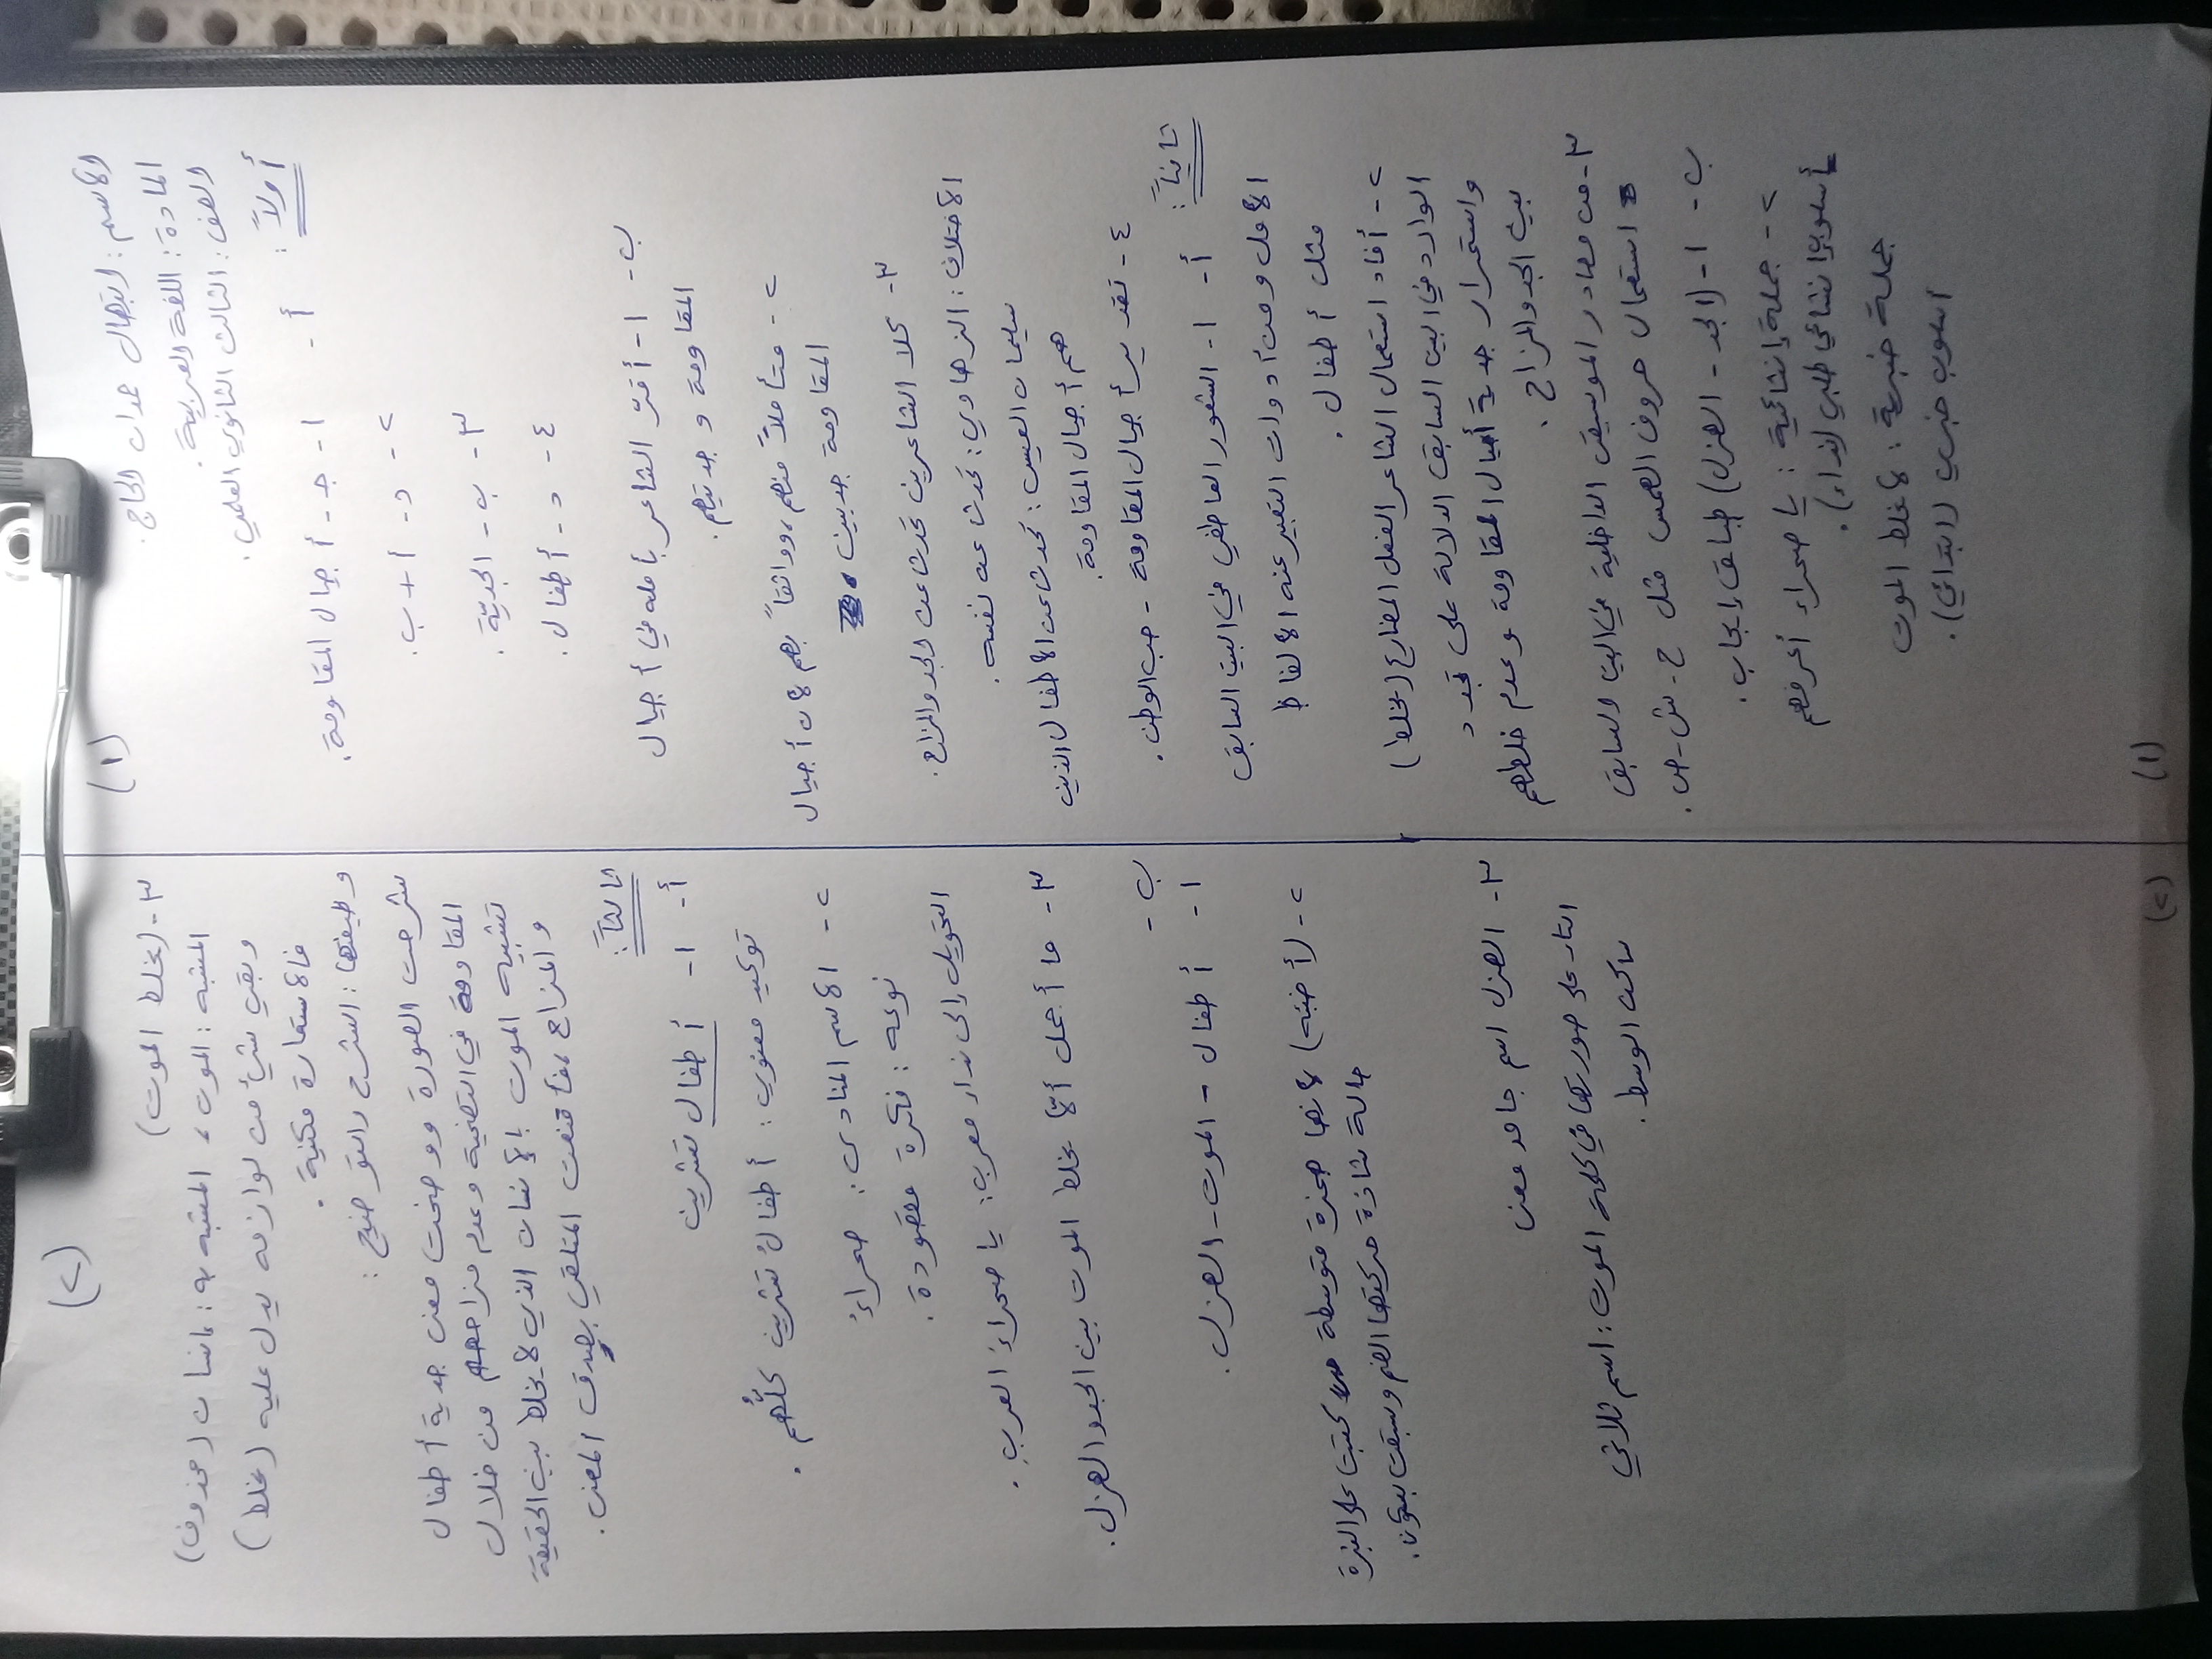 (١)
الاسم: ابتهال عدان الحاج.
المادة: اللغة العربية.
الصف: الثالث الثانوي العلمي.
أولاً:
أ -
١- جـ - أجيال المقاومة.
٢- د- أ + ب.
٣- ب - الجديّة.
٤- د - أطفال.
ب - ١- أقرّ الشاعر بأمله في أجيال
المقاومة وجديتهم.
٢- متأملاً منهم، وواثقاً بهم لأن أجيال
المقاومة جديين.
٣- كلا الشاعرين تحدث عن الجد والمزاح.
الاختلاف: الزهاوي: تحدث عن نفسه.
سليمان العيسى: تحدث عن الأطفال الذين
هم أجيال المقاومة.
٤- تقدير أجيال المقاومة - حب الوطن.
ثانياً:
أ - ١- الشعور العاطفي في البيت السابق
الأمل ومن أدوات التعبير عنه الألفاظ
مثل أطفال.
٢- أفاد استعمال الشاعر الفعل المضارع (يخلط)
الوارد في البيت السابق الدلالة على تجدد
واستمرار جدية أجيال المقاومة وعدم خلطهم
بين الجد والمزاح.
٣- من مصادر الموسيقى الداخلية في البيت السابق
استعمال حروف الهمس مثل ح - ش - ص.
ب - ١- (الجد - الهزل) طباق إيجاب.
٢- جملة إنشائية: يا صحراء أعرفهم
أسلوبها إنشائي طلبي (نداء).
جملة خبرية: لا يخلط الموت
أسلوب خبري (ابتدائي).
(١)
(٢)
٣- (يخلط الموت)
المشبه: الموت، المشبه به: إنسان (محذوف)
وبقي شيء من لوازمه يدل عليه (يخلط)
فالاستعارة مكنية.
وظيفتها: الشرح والتوضيح:
شرحت الصورة ووضحت معنى جدية أطفال
المقاومة في التضحية وعدم مزاحهم من خلال
تشبيه الموت بالإنسان الذي لا يخلط بين الحقيقة
والمزاح، فأقنعت المتلقي بصدق المعنى.
ثالثاً:
أ - ١- أطفال تشرين
توكيد معنوي: أطفالُ تشرين كلُّهم.
٢- الاسم المنادى: صحراءُ
نوعه: نكرة مقصودة.
التحويل إلى نداء معرب: يا صحراءَ العربِ.
٣- ما أجمل ألّا يخلط الموت بين الجد والهزل.
ب -
١- أطفال - الموت - الهزل.
٢- (أضنه) لأنها همزة متوسطة كتبت على النبرة
حالة شاذة حركتها الضم وسبقت بسكون.
٣- الهزل اسم جامد معنى
التاء على صورتها في كلمة الموت: اسم ثلاثي
ساكن الوسط.
(٢)